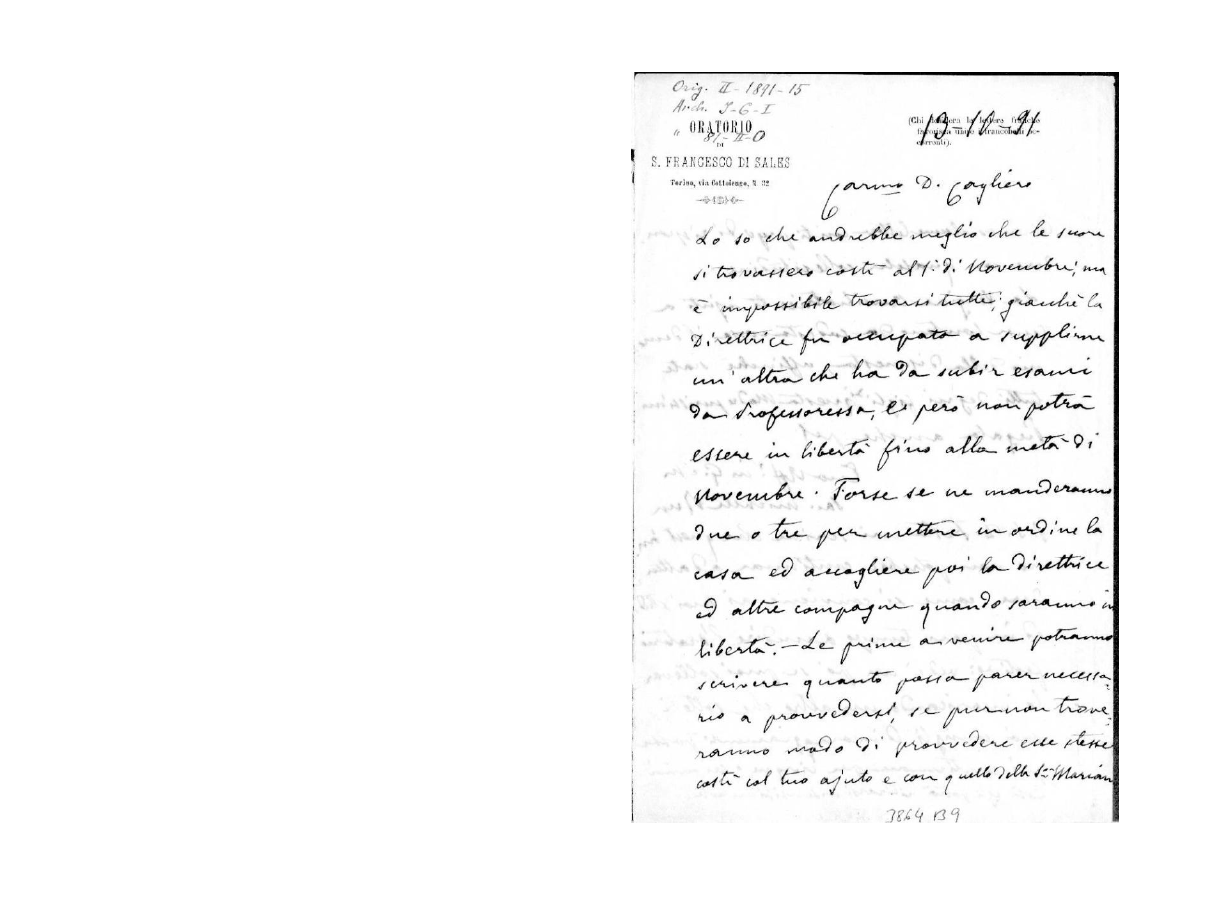 Orig. II - 1891-15
Arch. J-G-I
ORATORIO
DI
S. FRANCESCO DI SALES
Torino, via Cottolengo, N. 32
Car.mo D. Cagliero
Lo so che andrebbe meglio che le suore
si trovassero costì al 1° di Novembre; ma
è impossibile trovarsi tutte; giacchè la
Direttrice fu occupata a supplirne
un'altra che ha da subir esami
da Professoressa, e però non potrà
essere in libertà fino alla metà di
Novembre. Forse se ne manderanno
due o tre per mettere in ordine la
casa ed accogliere poi la direttrice
ed altre compagne quando saranno in
libertà. - Le prime a venire potranno
scrivere quanto possa parer necessa-
rio a provvedersi, se pur non trove-
ranno modo di provvedere esse stesse
costì col tuo ajuto e con quello della
3864 B9